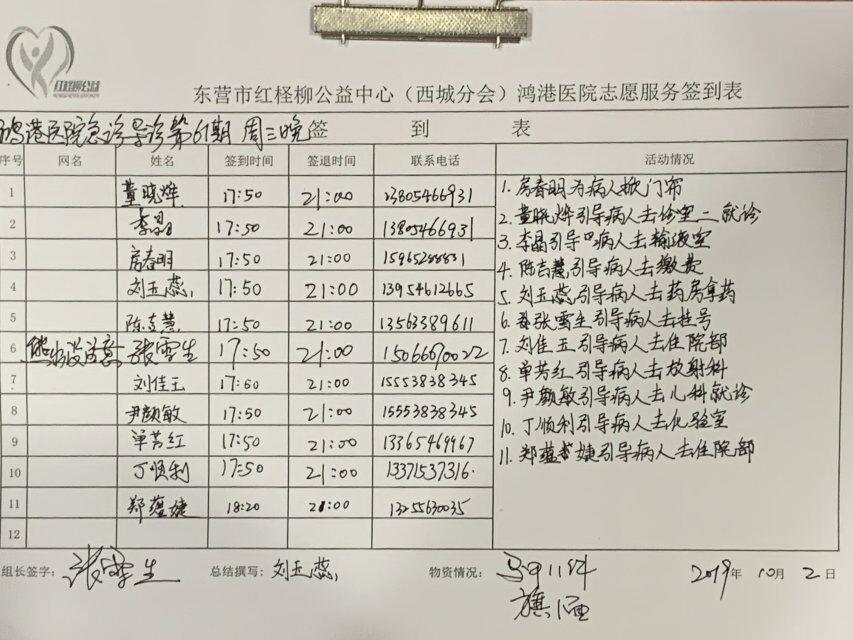 红柽柳公益
东营市红柽柳公益中心（西城分会）鸿港医院志愿服务签到表
鸿港医院急诊导诊第61期 周三晚 签 到 表
序号 网名 姓名 签到时间 签退时间 联系电话 活动情况
1 董晓烨 17:50 21:00 13805466931
2 李晶 17:50 21:00 13805466931
3 房春明 17:50 21:00 15965288831
4 刘玉蕊 17:50 21:00 13954612665
5 陈吉慧 17:50 21:00 13563389611
6 熊出没注意 张雪生 17:50 21:00 15066690022
7 刘佳玉 17:50 21:00 15553838345
8 尹颜敏 17:50 21:00 15553838345
9 单芳红 17:50 21:00 13365469967
10 丁顺利 17:50 21:00 13371537316
11 郑蕴婕 18:20 21:00 13255630035
12
1. 房春明为病人掀门布
2. 董晓烨引导病人去诊室二就诊
3. 李晶引导病人去输液室
4. 陈吉慧引导病人去缴费
5. 刘玉蕊引导病人去药房拿药
6. 张雪生引导病人去挂号
7. 刘佳玉引导病人去住院部
8. 单芳红引导病人去放射科
9. 尹颜敏引导病人去儿科就诊
10. 丁顺利引导病人去化验室
11. 郑蕴婕引导病人去住院部
组长签字： 张雪生 总结撰写： 刘玉蕊 物资情况： 马甲11件 2019年 10月 2日
旗1面